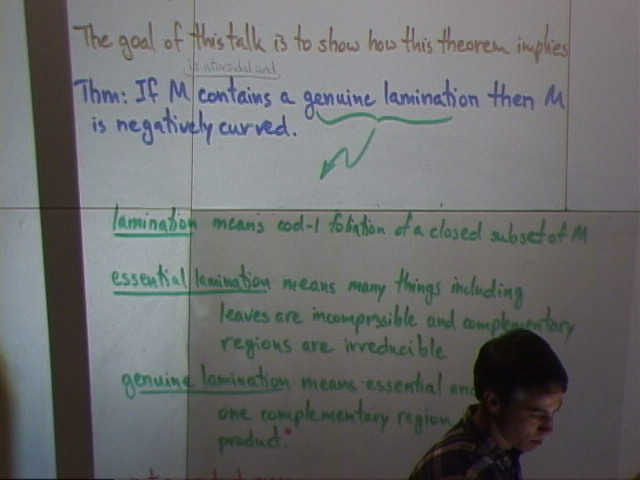 The goal of this talk is to show how this theorem implies
is atoroidal and
Thm: If M contains a genuine lamination then M
is negatively curved.
lamination means cod-1 foliation of a closed subset of M
essential lamination means many things including
leaves are incomprssible and complementary
regions are irreducible
genuine lamination means essential and
one complementary region
product.